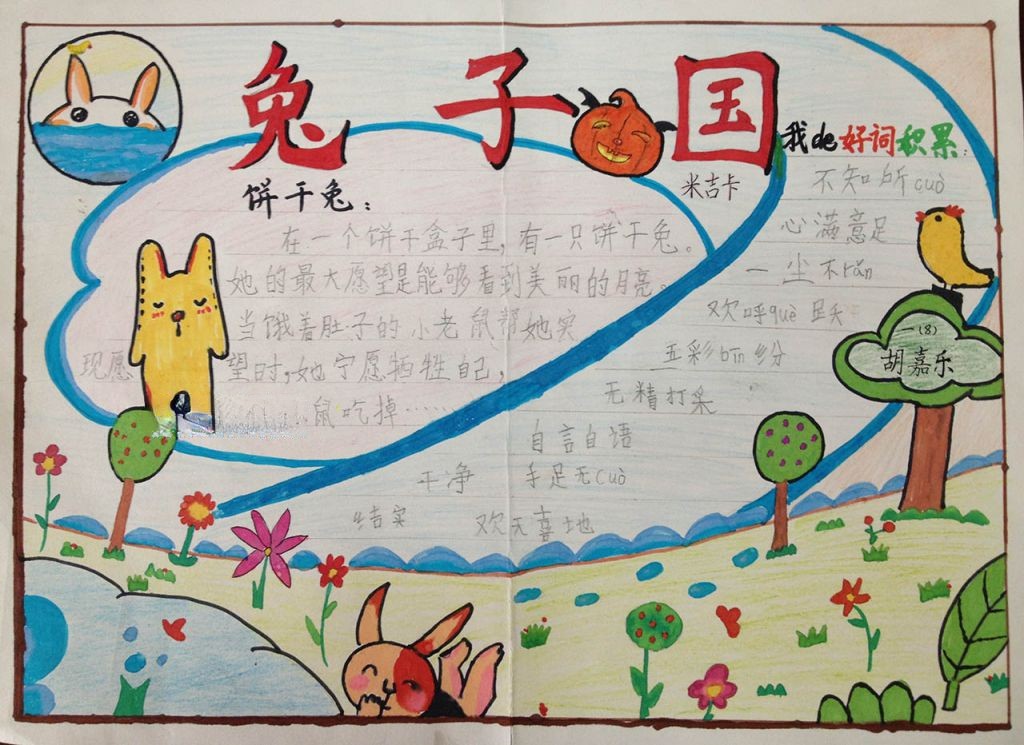 兔子国
米吉卡
饼干兔：
在一个饼干盒子里，有一只饼干兔。
她的最大愿望是能够看到美丽的月亮。
当饿着肚子的小老鼠帮她实
现愿望时，她宁愿牺牲自己，
……鼠吃掉……
我de好词积累：
不知所cuò
心满意足
一尘不rǎn
欢呼què跃
五彩bīn纷
无精打采
自言自语
干净
手足无cuò
结实
欢天喜地
一（8）
胡嘉乐